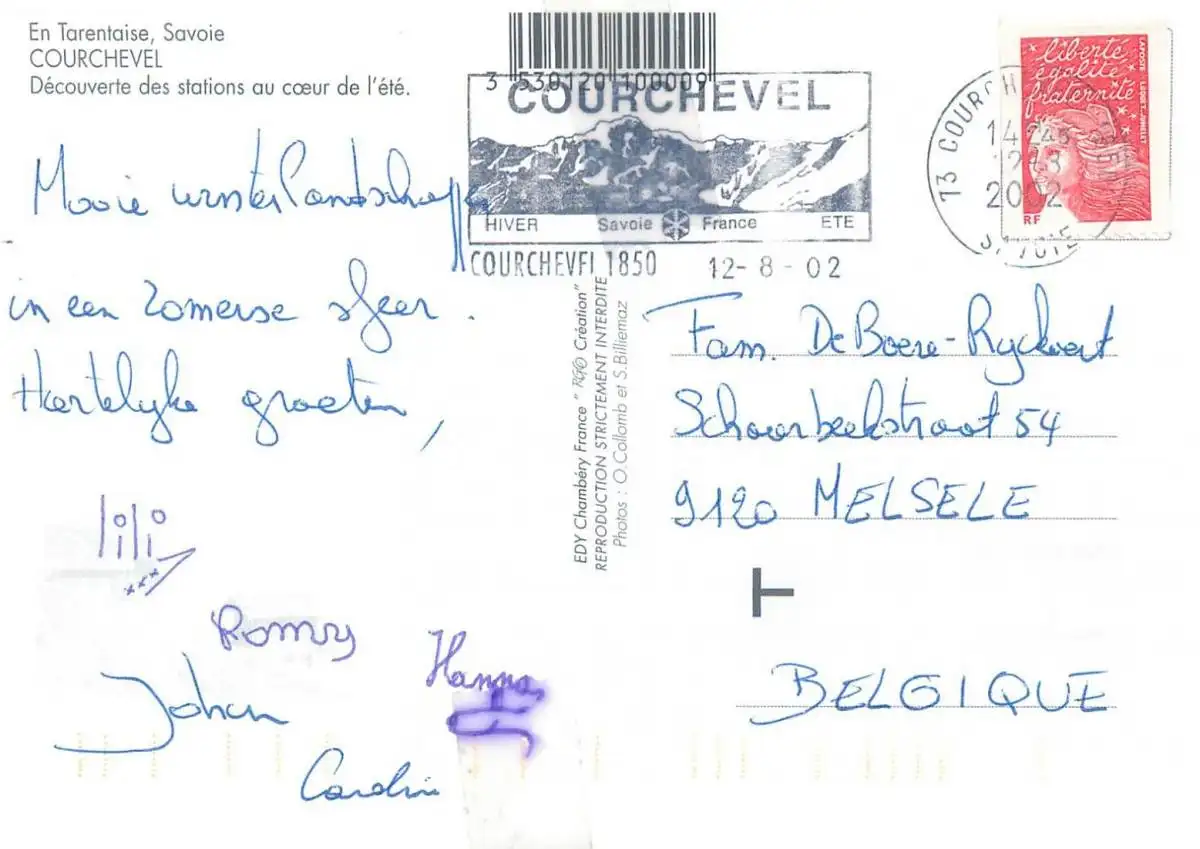 En Tarentaise, Savoie
COURCHEVEL
Découverte des stations au cœur de l'été.
3 530120 100009
COURCHEVEL
HIVER Savoie France ETE
COURCHEVEL 1850 12-8-02
73 COURCH
14H45
12-8
2002
SAVOIE
liberté
égalité
fraternité
RF
LAPOSTE
Mooie winterlandschappen
in een zomerse sfeer.
Hartelijke groeten,
lili
xxx
Romy
Hanna
Johan
Carolin
EDY Chambéry France " RGO Création"
REPRODUCTION STRICTEMENT INTERDITE
Photos : O.Collomb et S.Billiemaz
Fam. De Boere-Ryckvert
Schaarbeekstraat 54
9120 MELSELE
T
BELGIQUE